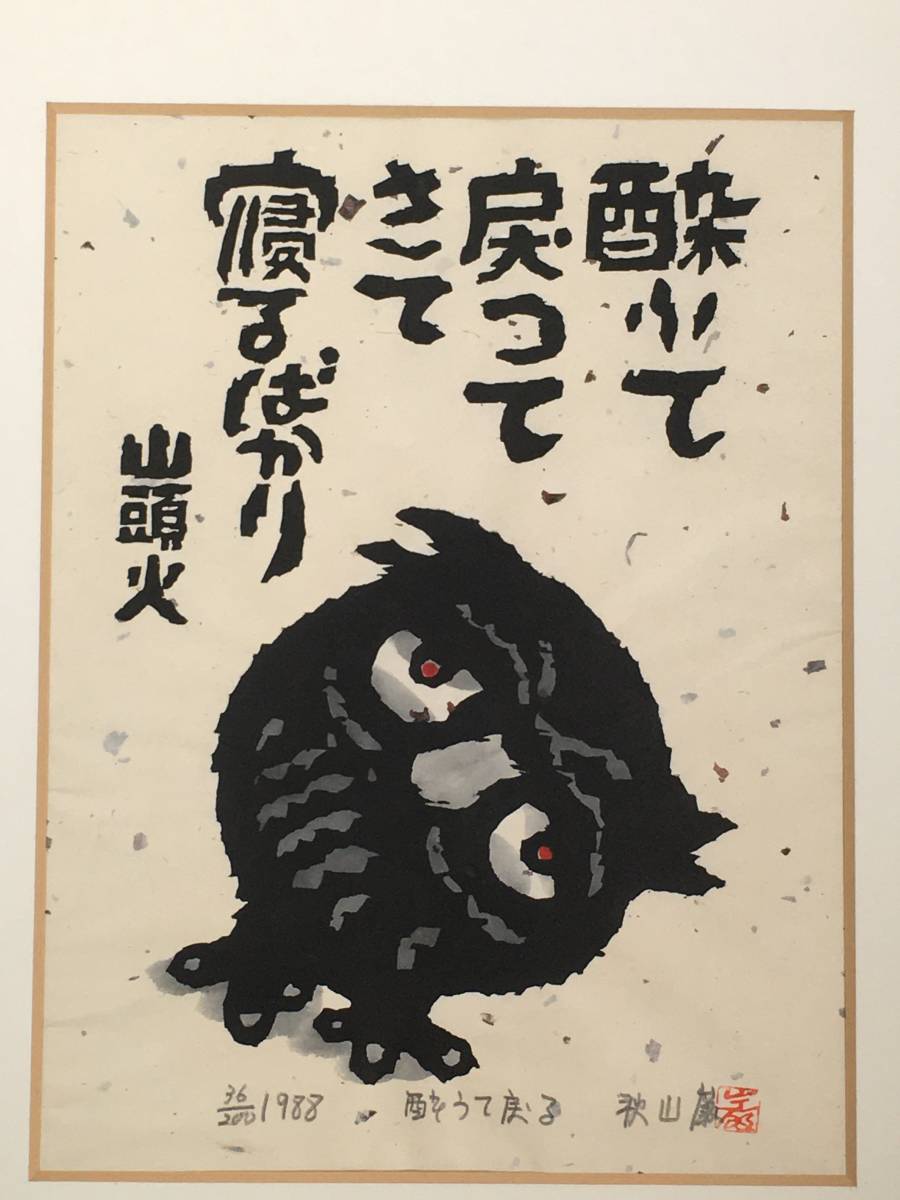 酔ひて
戻つて
きて
寝るばかり
山頭火
36/200 1988 酔うて戻る 秋山巌